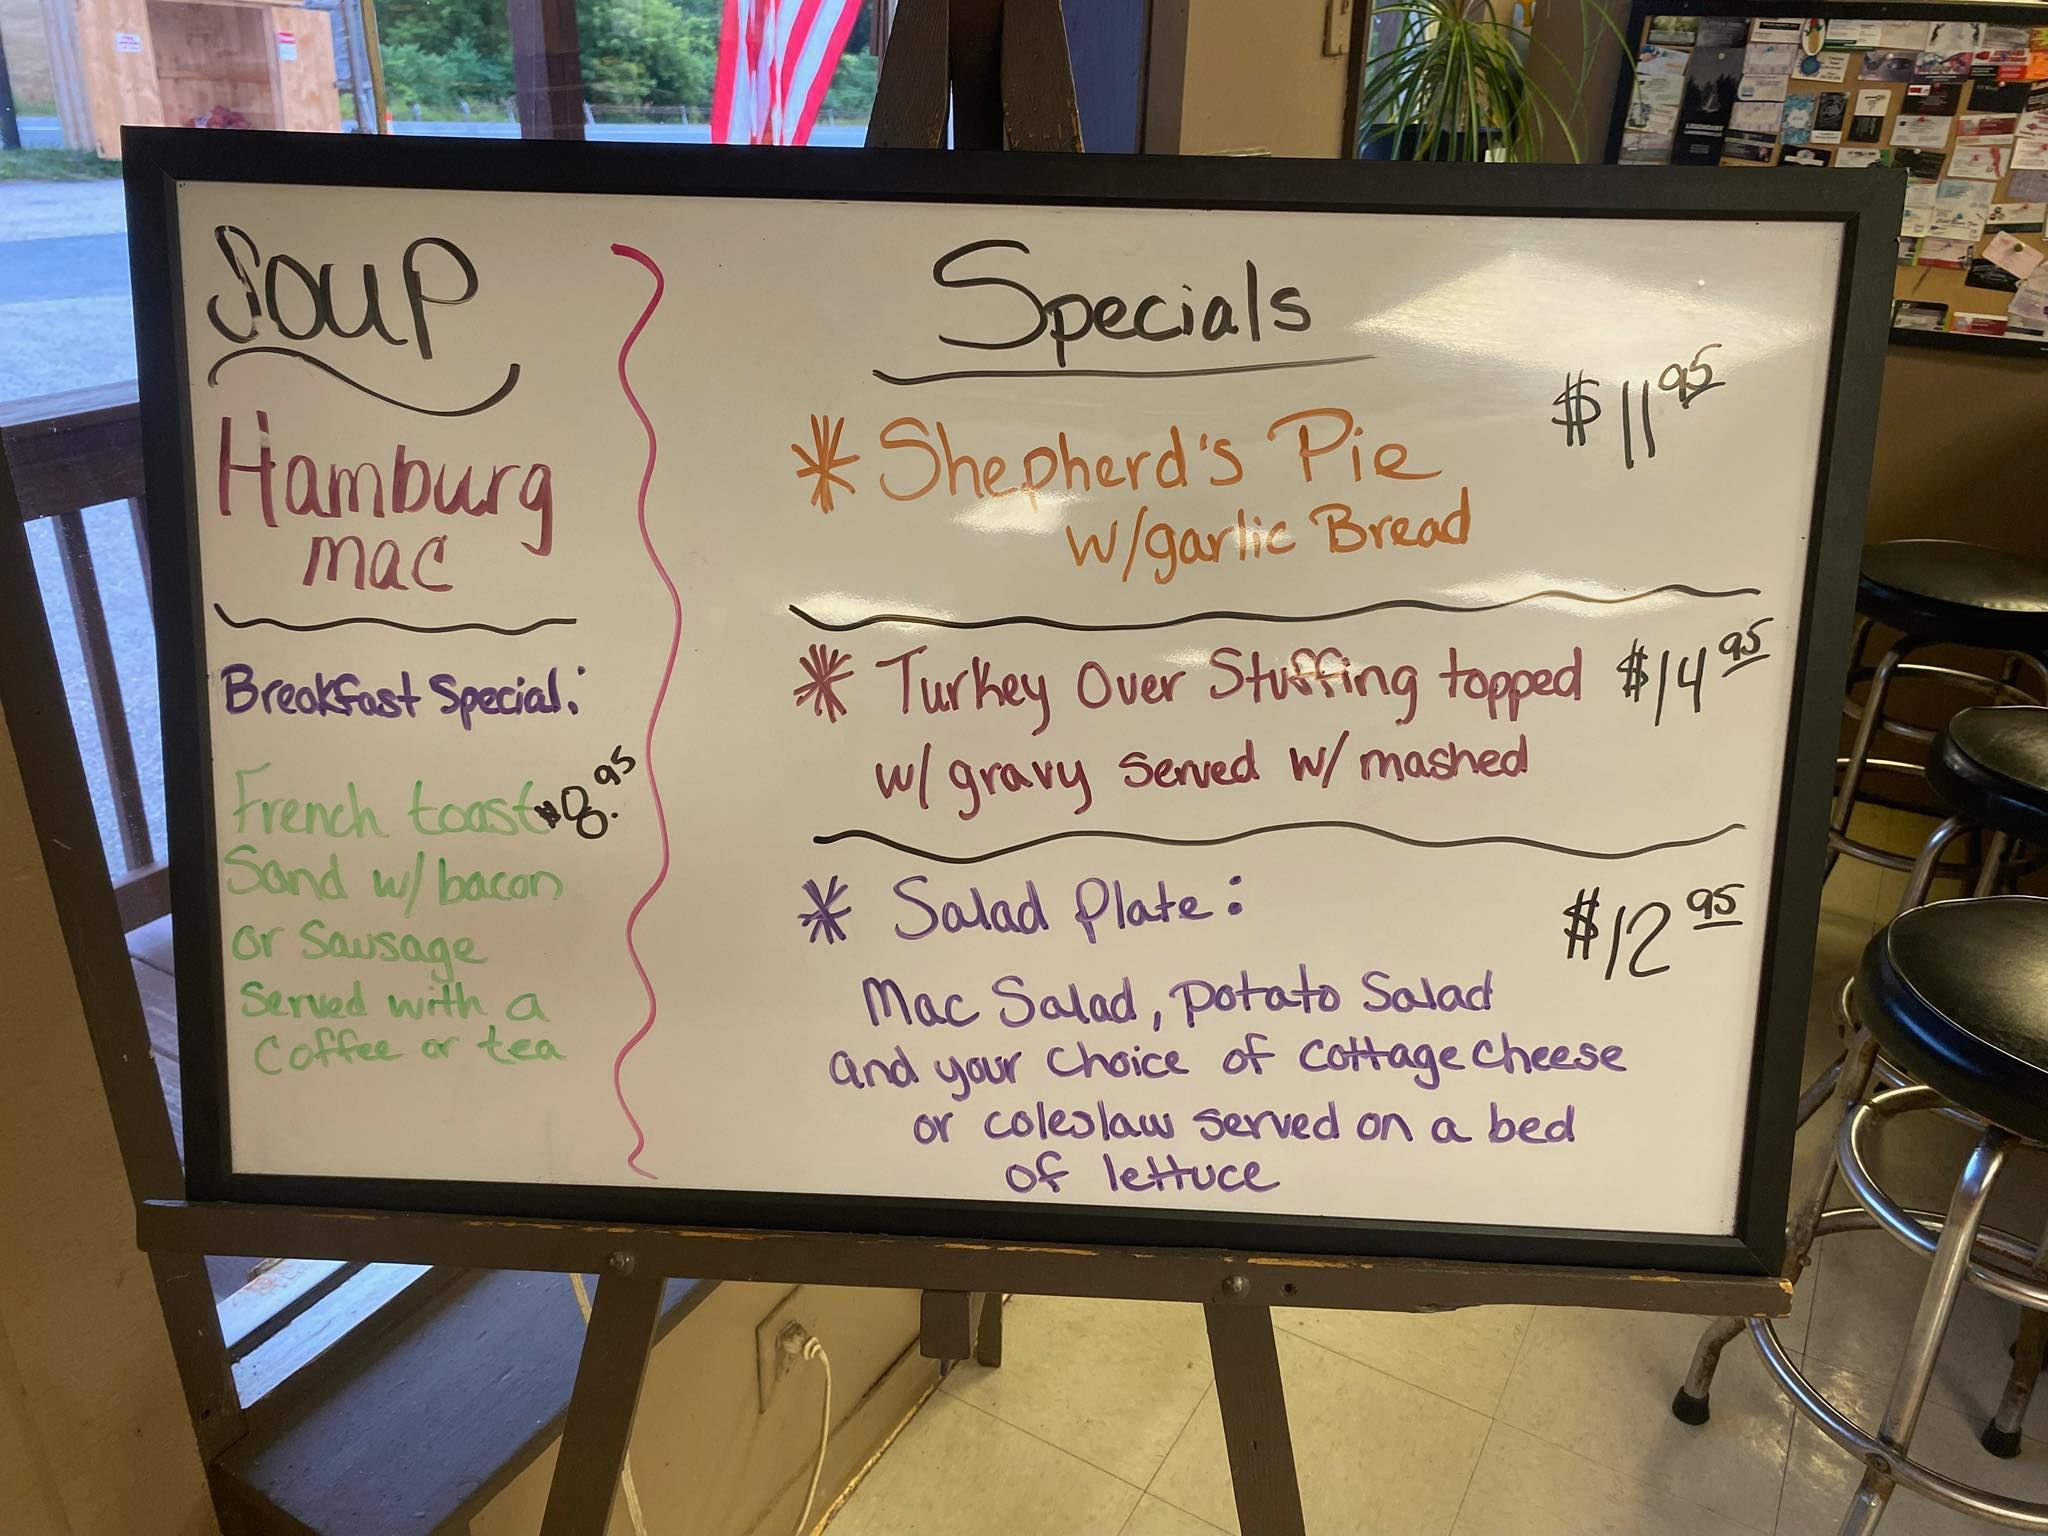 Soup
Hamburg
mac
Breakfast Special:
French toast $8.95
Sand w/ bacon
or Sausage
Served with a
Coffee or tea
Specials
$11.95
* Shepherd's Pie
w/garlic Bread
* Turkey Over Stuffing topped $14.95
w/ gravy served w/ mashed
* Salad Plate: $12.95
Mac Salad, potato Salad
and your choice of cottage cheese
or coleslaw served on a bed
of lettuce